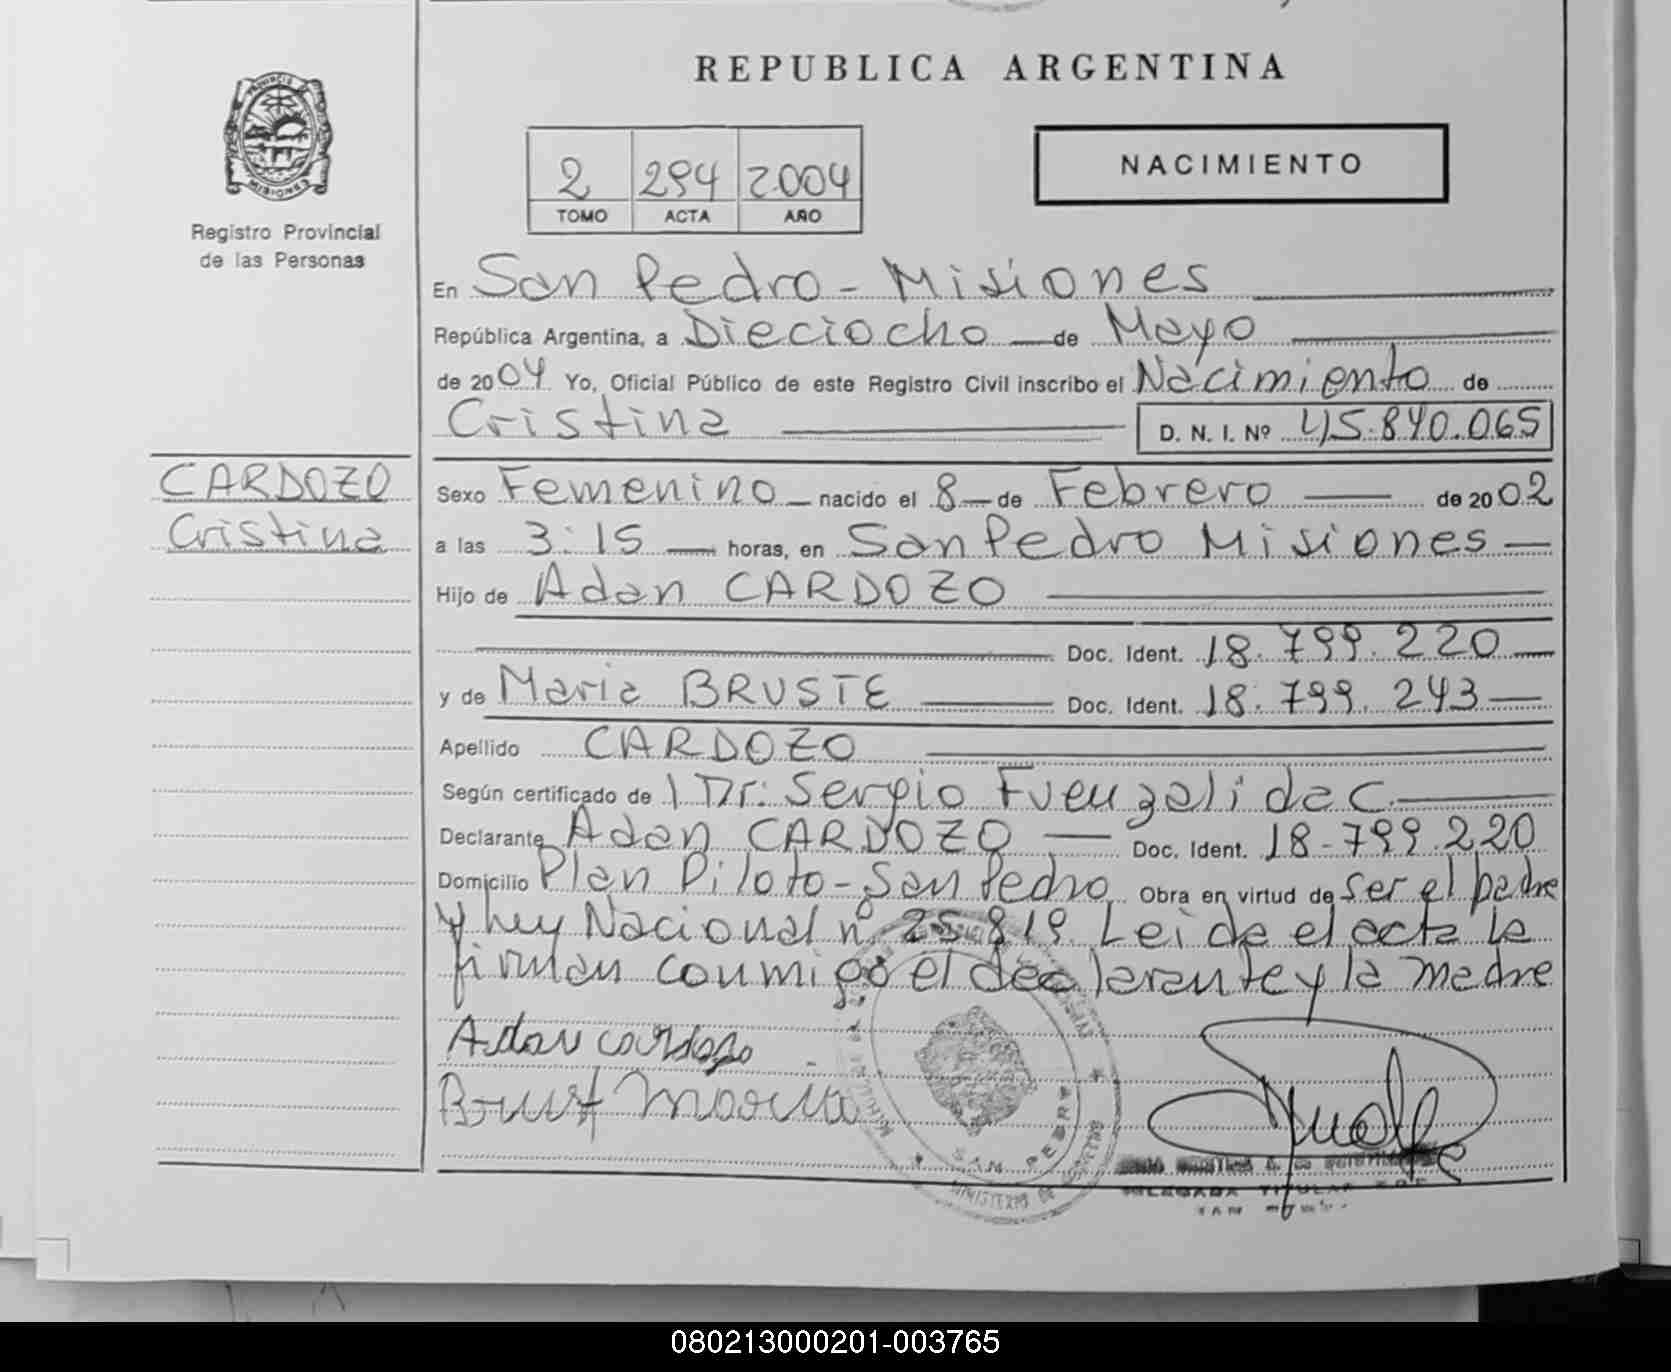 REPUBLICA ARGENTINA
NACIMIENTO
2 294 2004
TOMO ACTA AÑO
PROVINCIA MISIONES
Registro Provincial
de las Personas
En San Pedro - Misiones
República Argentina, a Dieciocho de Mayo
de 2004 Yo, Oficial Público de este Registro Civil inscribo el Nacimiento de
Cristina D. N. I. Nº 45.840.065
CARDOZO
Cristina
Sexo Femenino nacido el 8 de Febrero de 2002
a las 3:15 horas, en San Pedro Misiones
Hijo de Adan CARDOZO
Doc. Ident. 18.799.220
y de Maria BRUSTE Doc. Ident. 18.799.243
Apellido CARDOZO
Según certificado de Dr. Sergio Fuenzalida C.
Declarante Adan CARDOZO Doc. Ident. 18-799.220
Domicilio Plan Piloto - San Pedro Obra en virtud de ser el padre
y ley Nacional nº 25.819. Leida el acta la
firman conmigo el declarante y la madre
Adan cardozo
Brust Maria
SAN PEDRO
MINISTERIO DE GOBIERNO
DELEGADA TITULAR
080213000201-003765